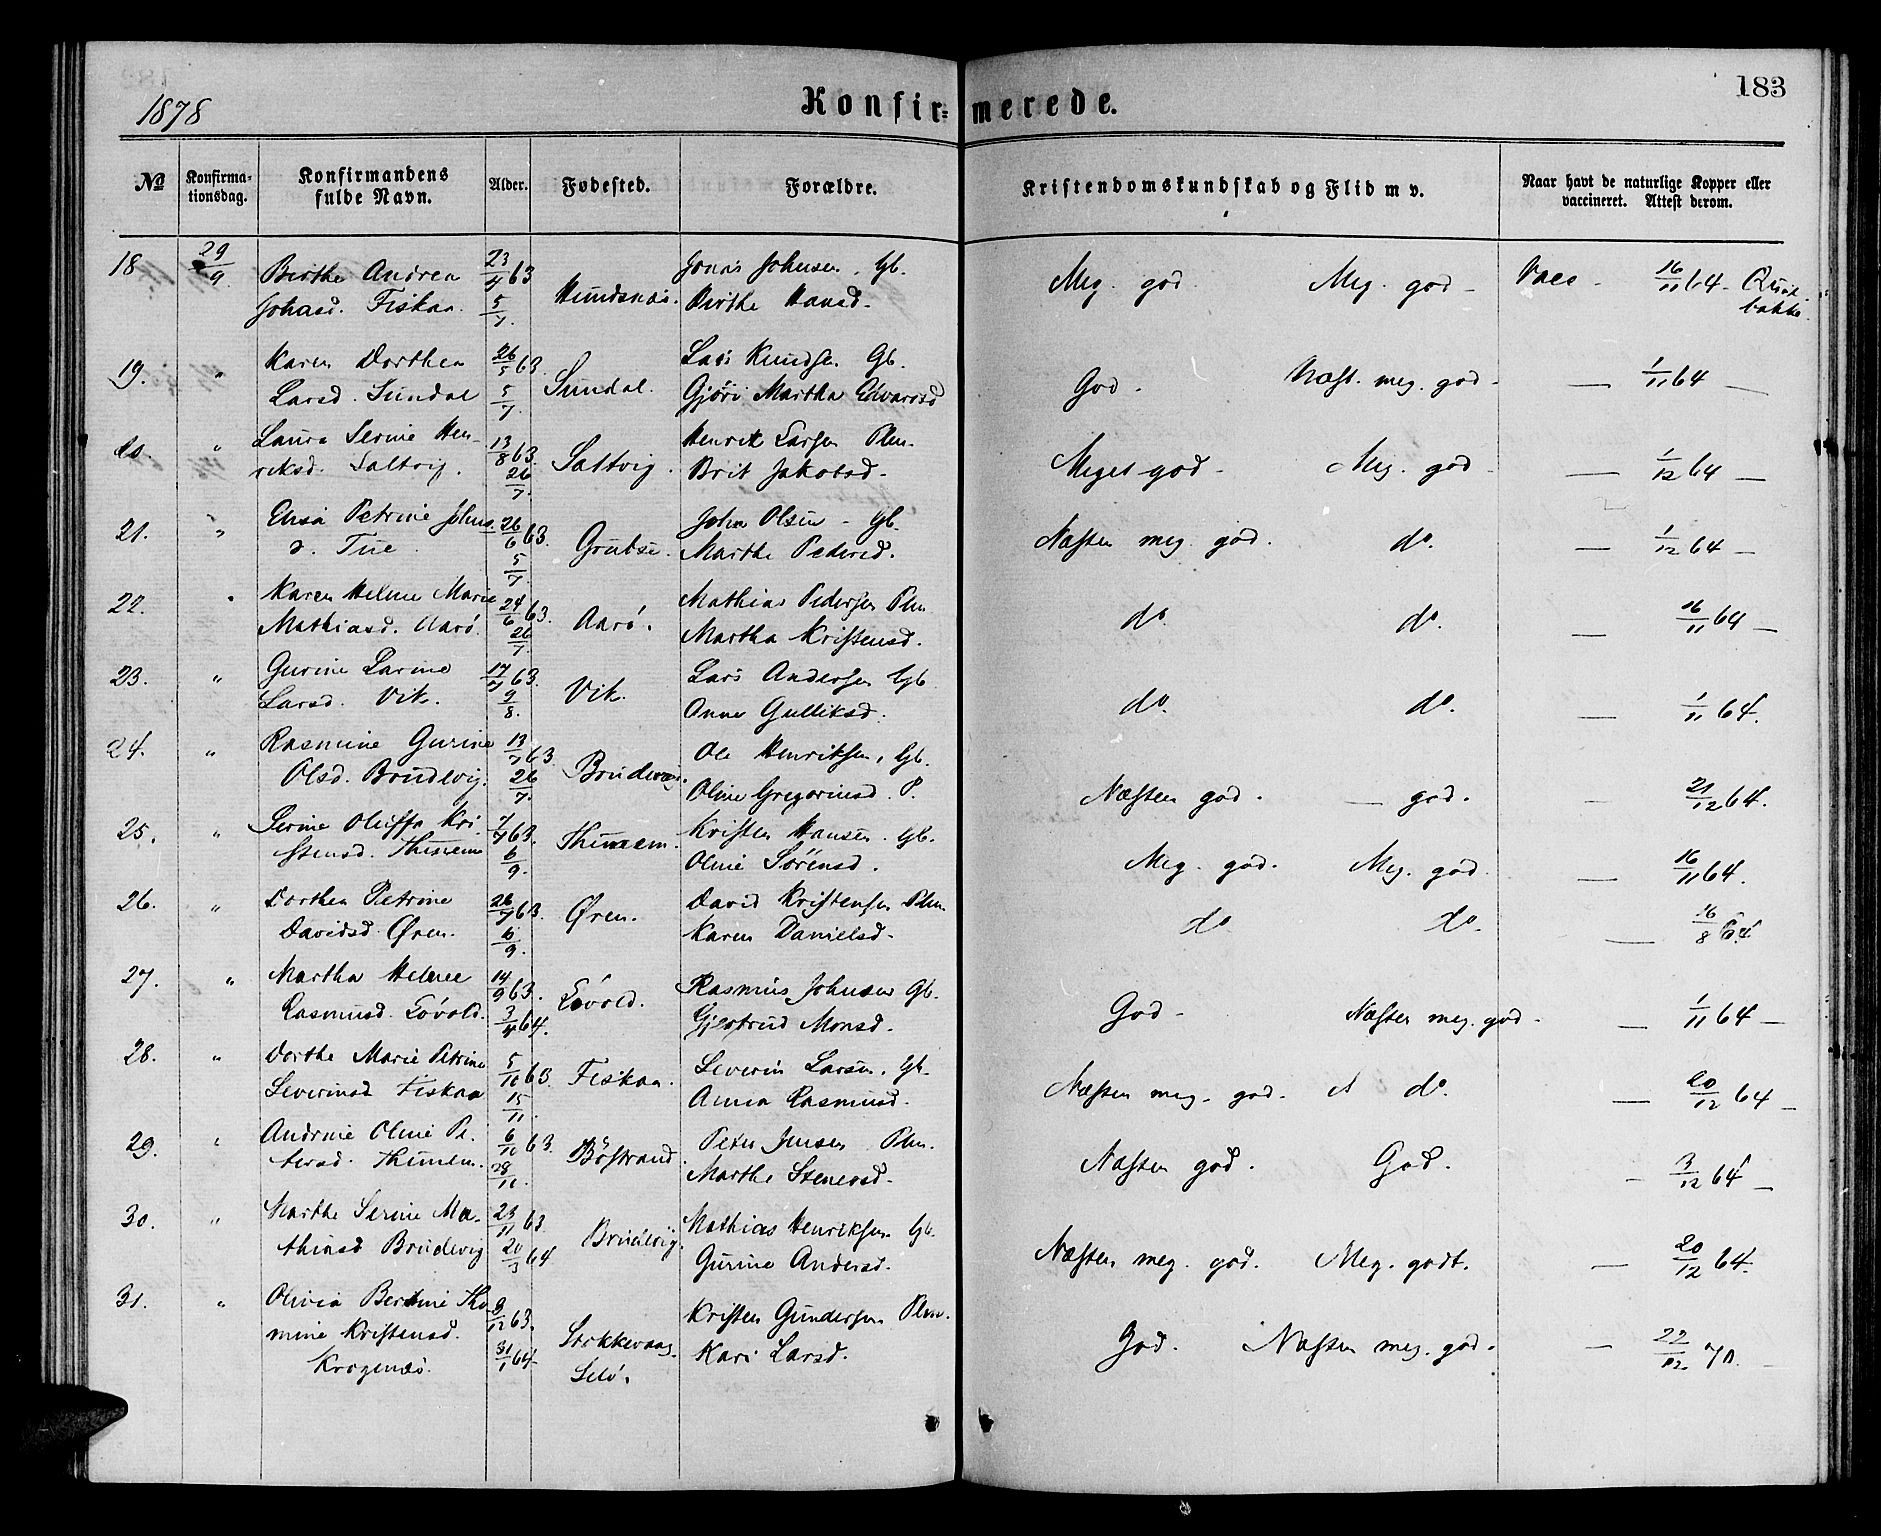 1878
Konfirmerede.
183
No
Konfirma-
tionsdag.
Konfirmandens
fulde Navn.
Alder.
Fødested.
Forældre.
Kristendomskundskab og Flid m v.
Naar havt de naturlige Kopper eller
vaccineret. Attest derom.
18 29/9 Berthe Andrea 23/4 63 Hundsnæs. Jonas Johnsen. Gb. Meg. god Meg. god - Vacc - 16/11 64 -
Johasd. Fiskaa. 5/7. Berthe Hansd.
19. " Karen Dorthea 26/5 63. Sundal. Lars Knudsen Gb. God - Næst. meg. god - — 1/11 64 —
Larsd. Sundal 5/7. Gjøri Martha Edvardsd
20. " Laura Serine Hen- 13/8 63. Saltvig. Henrik Larsen Plm. Meget god - Meg. god — 1/12 64 —
riksd. Saltvig. 26/7. Brit Jakobsd -
21. " Elisa Petrine Johns. 26/6 63. John Olsen - Gb. Næsten meg. god. do. — 1/12 64 —
d. Tue. 5/7. Marthe Pedersd.
22. " Karen Helene Marie 24/6 63. Aarö. Mathias Pedersen Plm do. do. — 16/11 64 —
Mathiasd. Aarö. 26/7. Martha Kristensd.
23. " Gurine Larine 17/7 63. Vik. Lars Andersen Gb do. do. — 1/11 64.
Larsd. Vik. 9/8. Anne Gulliksd.
24. " Rasmine Gurine 13/7 63. Ole Henriksen, Gb. Næsten god. — god. — 21/12 64.
Olsd. Brudevig. 26/7. Oline Gregoriusd. P.
25. " Serine Oluffa Kri- 7/7 63. Kristen Hansen. Gb. Meg. god. Meg. god. — 16/11 64.
stensd. 6/9. Oline Sörensd.
26. " Dorthea Petrine 26/7 63. Øren. David Kristensen Plm. do do. — 16/8 64
Davidsd. Øren. 6/9. Karen Danielsd.
27. " Martha Helene 14/9 63. Lövold. Rasmus Johnsen Gb. God - Næsten meg. god - — 1/11 64 —
Rasmusd. Lövold. 3/4 64. Gjertrud Monsd.
28. " Dorthe Marie Petrine 5/10 63. Fiskaa. Severin Larsen. Gb. Næsten meg. god. do. — 20/12 64 —
Severinsd Fiskaa 15/11. Anna Rasmusd.
29. " Andrine Oline Pe- 6/10 63. Böstrand Peter Jensen Plm. Næsten god. God. - 3/12 64 —
tersd. 28/11. Marthe Stenersd.
30. " Marthe Serine Ma- 23/11 63 Brudevig. Mathias Henriksen Gb. Næsten meg. god. Meg. godt. — 20/12 64.
thiasd Brudevig 20/3 64 Gurine Andersd.
31. " Olivia Bertine Tho 3/12 63. Stokkevaag. Kristen Gundersen Plm. God. Næsten meg. god. — 22/12 70.
mine Kristensd. 31/1 64 Selö. Kari Larsd.
Kragenæs.